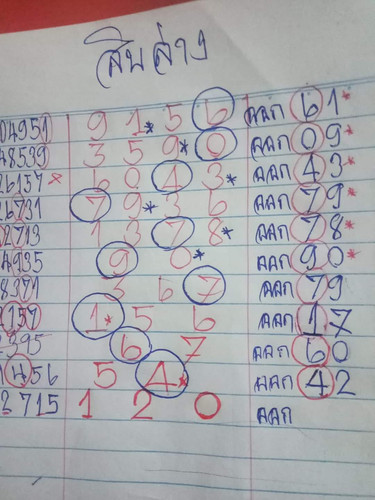 สิบล่าง
04951 9 1* 5 6 ออก 61*
48539 3 5 9* 0 ออก 09*
26157* 6 0 4 3* ออก 43*
26731 7 9* 3 6 ออก 79*
2713 1 3 7 8* ออก 78*
4935 9 0* ออก 90*
8371 3 6 7 ออก 79
157 1* 5 6 ออก 17
395 6 7 ออก 60
456 5 4* ออก 42
2715 1 2 0 ออก